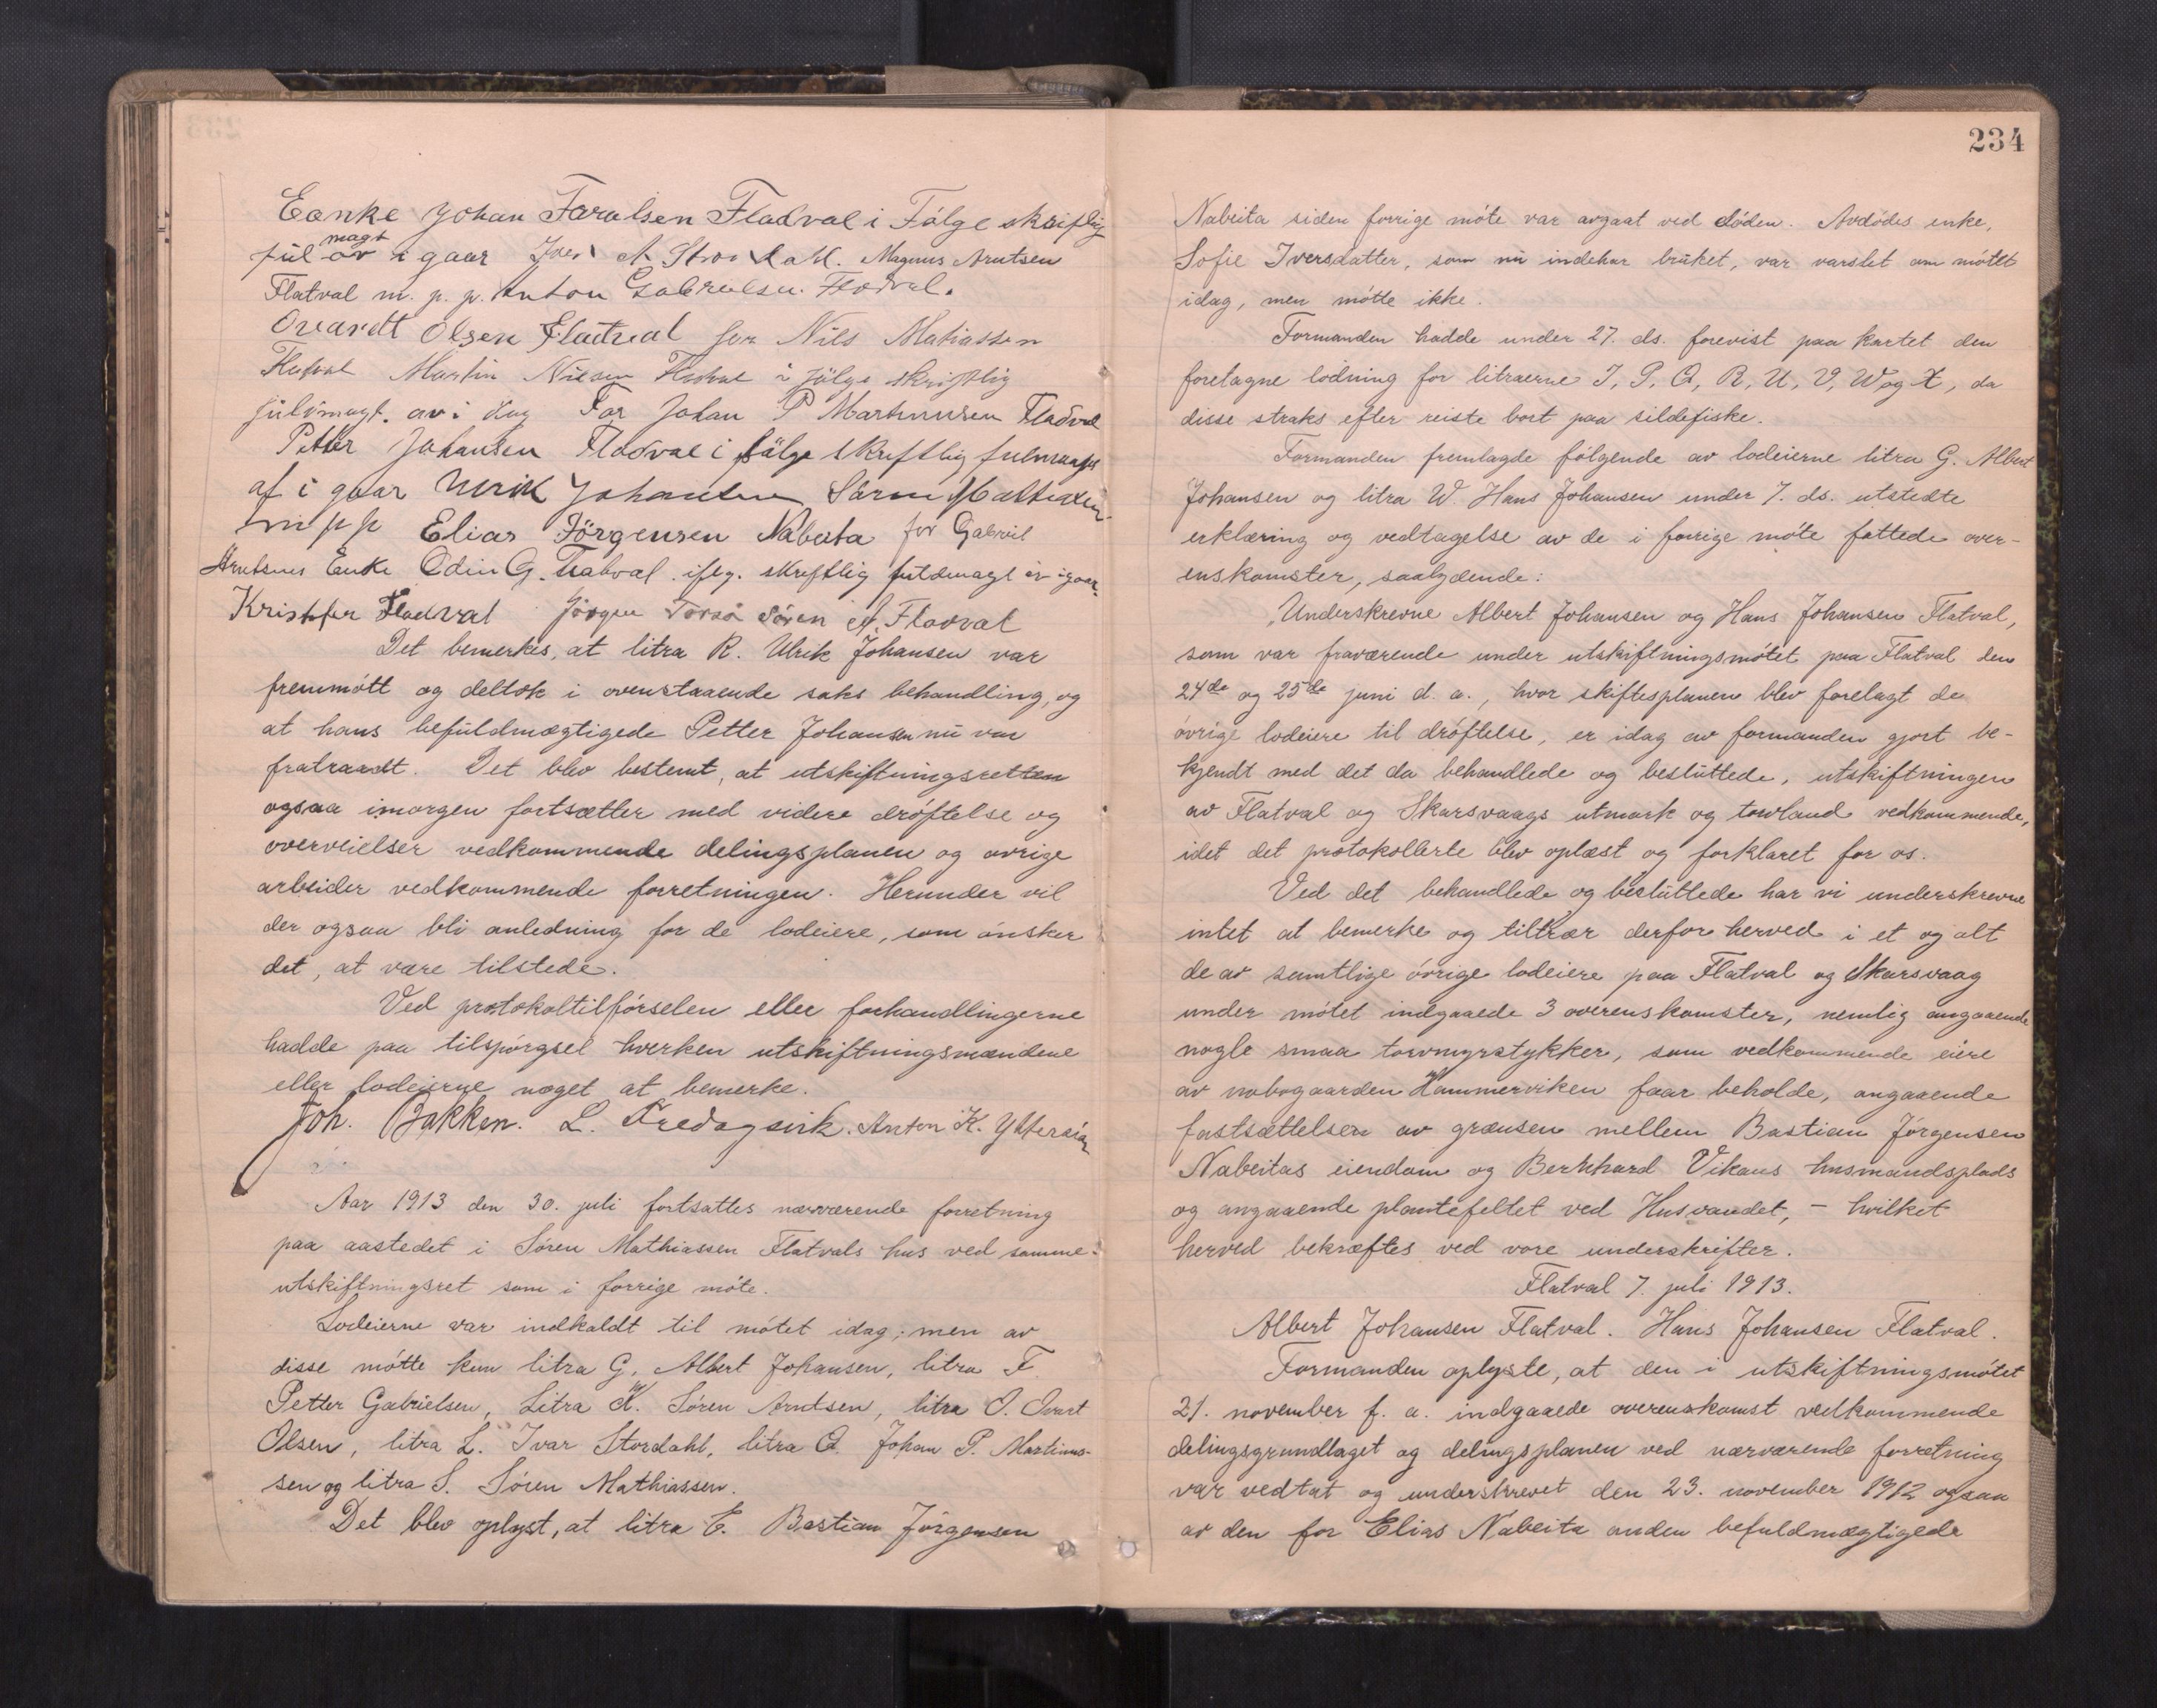 Eanke Johan Farulsen Fladval i Fölge skriftlig
magt
ful av i gaar Iver A Stordahl. Magnus Arntsen
Flatval m. p. p. Anton Gabrielsen Flodval.
Ovardt Olsen Fladval for Nils Matiassen
Flatval Martin Nilsen Flatval i fölge skriftlig
fuldmagt. av i dag For Johan P Martinusen Fladval
Petter Johansen Fladval i fölge skriftlig fulmagt
af i gaar Ulrik Johansen Sören Mathiasen
m p p Elias Jörgensen Nabeita for Gabriel
Arntsens Enke Odin G. Flatval. ifg. skriftlig fuldmagt av igaar
Kristofer Fladval Jörgen Torsö Sören A. Fladval
Det bemerkes, at litra R. Ulrik Johansen var
fremmött og deltok i ovenstaaende saks behandling, og
at hans befuldmægtigede Petter Johansen nu var
fratraadt. Det blev bestemt, at utskiftningsretten
ogsaa imorgen fortsætter med videre dröftelse og
overveielser vedkommende delingsplanen og övrige
arbeider vedkommende forretningen. Herunder vil
der ogsaa bli anledning for de lodeiere, som önsker
det, at være tilstede.
Ved protokoltilförselen eller forhandlingerne
hadde paa tilspörgsel hverken utskiftningsmændene
eller lodeierne noget at bemerke.
Joh. Bakken. L. Fredagsvik. Anton K. Ytteröian
Aar 1913 den 30. juli fortsattes nærværende forretning
paa aastedet i Sören Mathiassen Flatvals hus ved samme
utskiftningsret som i forrige möte.
Lodeierne var indkaldt til mötet idag; men av
disse mötte kun litra G, Albert Johansen, litra F.
Petter Gabrielsen, Litra K. Sören Arntsen, litra O. Ovart
Olsen, litra L. Ivar Stordahl, litra Q. Johan P. Martinus-
sen og litra S. Sören Mathiassen.
Det blev oplyst, at litra C. Bastian Jörgensen
234
Nabeita siden forrige möte var avgaat ved döden. Avdödes enke,
Sofie Iversdatter, som nu indehar bruket, var varslet om mötet
idag, men mötte ikke.
Formanden hadde under 27. ds. forevist paa kartet den
foretagne lodning for litraerne I, P, Q, R, U, V, W og X, da
disse straks efter reiste bort paa sildefiske.
Formanden fremlagde fölgende av lodeierne litra G. Albert
Johansen og litra W. Hans Johansen under 7. ds. utstedte
erklæring og vedtagelse av de i forrige möte fattede over-
enskomster, saalydende:
„Underskrevne Albert Johansen og Hans Johansen Flatval,
som var fraværende under utskiftningsmötet paa Flatval den
24de og 25de juni d. a., hvor skiftesplanen blev forelagt de
övrige lodeiere til dröftelse, er idag av formanden gjort be-
kjendt med det da behandlede og besluttede, utskiftningen
av Flatval og Skarsvaags utmark og torvland vedkommende,
idet det protokollerte blev oplæst og forklaret for os.
Ved det behandlede og besluttede har vi underskrevne
intet at bemerke og tiltrær derfor herved i et og alt
de av samtlige övrige lodeiere paa Flatval og Skarsvaag
under mötet indgaaede 3 overenskomster, nemlig angaaende
nogle smaa torvmyrstykker, som vedkommende eiere
av nabogaarden Hammerviken faar beholde, angaaende
fastsættelsen av grænsen mellem Bastian Jörgensen
Nabeitas eiendom og Bernhard Vikans husmandsplads
og angaaende plantefeltet ved Husvandet, - hvilket
herved bekræftes ved vore underskrifter.
Flatval 7. juli 1913.
Albert Johansen Flatval. Hans Johansen Flatval.
Formanden oplyste, at den i utskiftningsmötet
21. november f. a. indgaaede overenskomst vedkommende
delingsgrundlaget og delingsplanen ved nærværende forretning
var vedtat og underskrevet den 23. november 1912 ogsaa
av den for Elias Nabeita anden befuldmægtigede